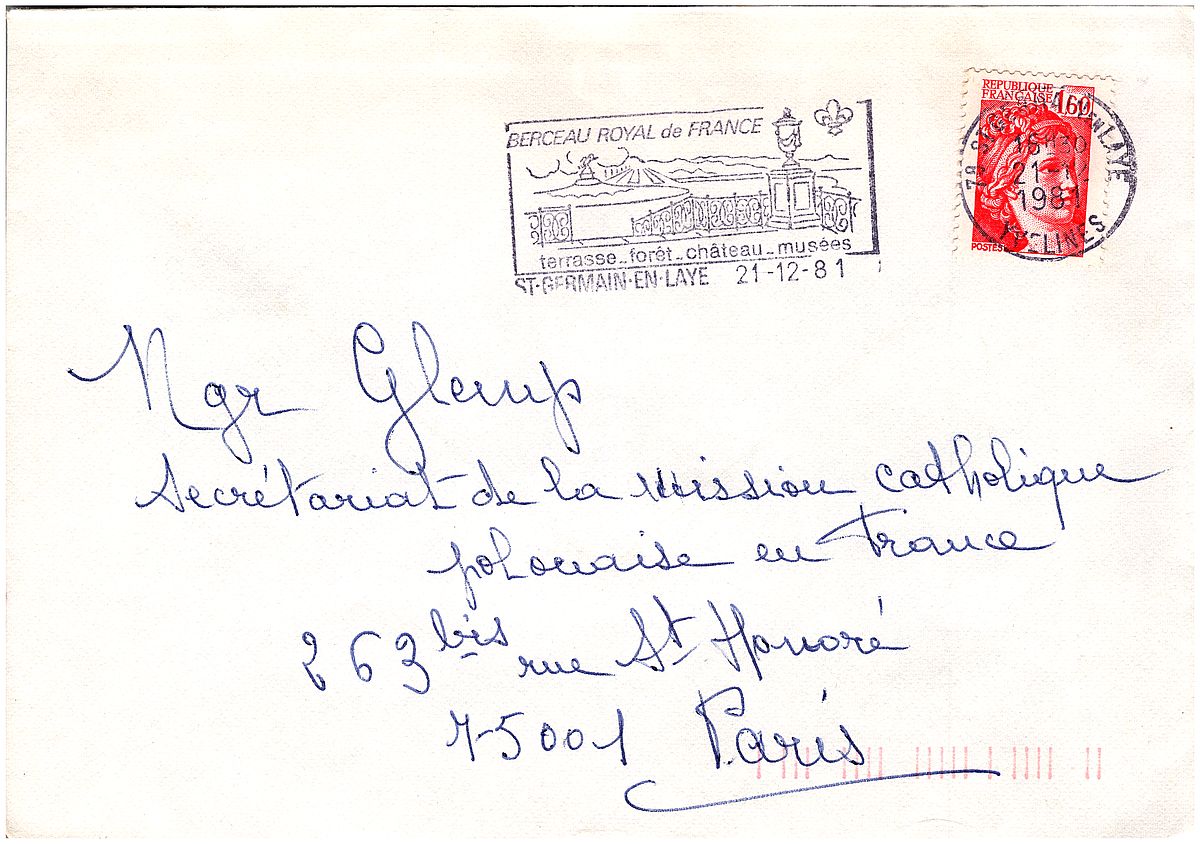 BERCEAU ROYAL de FRANCE
terrasse_forêt_château_musées
ST-GERMAIN-EN-LAYE 21-12-81
REPUBLIQUE
FRANÇAISE 1,60
POSTES
78 ST GERMAIN EN LAYE
21-12
1981
YVELINES
Mgr Glemp
Secrétariat de la Mission catholique
polonaise en France
263 bis rue St Honoré
75001 Paris